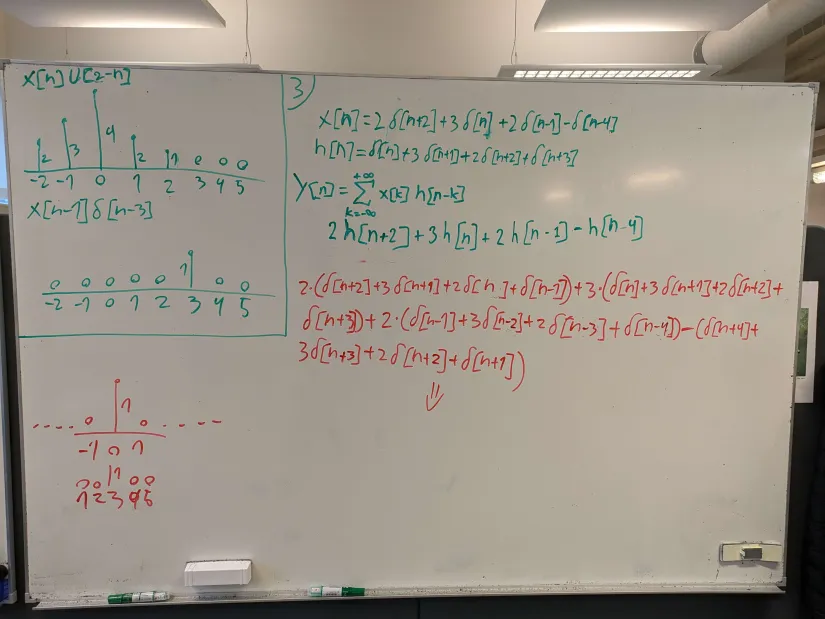 x[n]U[2-n]
2 3 4 2 1 0 0 0
-2 -1 0 1 2 3 4 5
x[n-1]δ[n-3]
0 0 0 0 0 1 0 0
-2 -1 0 1 2 3 4 5
3)
x[n]=2δ[n+2]+3δ[n]+2δ[n-1]-δ[n-4]
h[n]=δ[n]+3δ[n+1]+2δ[n+2]+δ[n+3]
y[n]=∑ x[k] h[n-k]
+∞
k=-∞
2h[n+2]+3h[n]+2h[n-1]-h[n-4]
2·(δ[n+2]+3δ[n+1]+2δ[n]+δ[n-1])+3·(δ[n]+3δ[n+1]+2δ[n+2]+
δ[n+3])+2·(δ[n-1]+3δ[n-2]+2δ[n-3]+δ[n-4])-(δ[n+4]+
3δ[n+3]+2δ[n+2]+δ[n+1])
⇓
.... 0 1 0 ....
-1 0 1
0 0 1 0 0
1 2 3 4 5